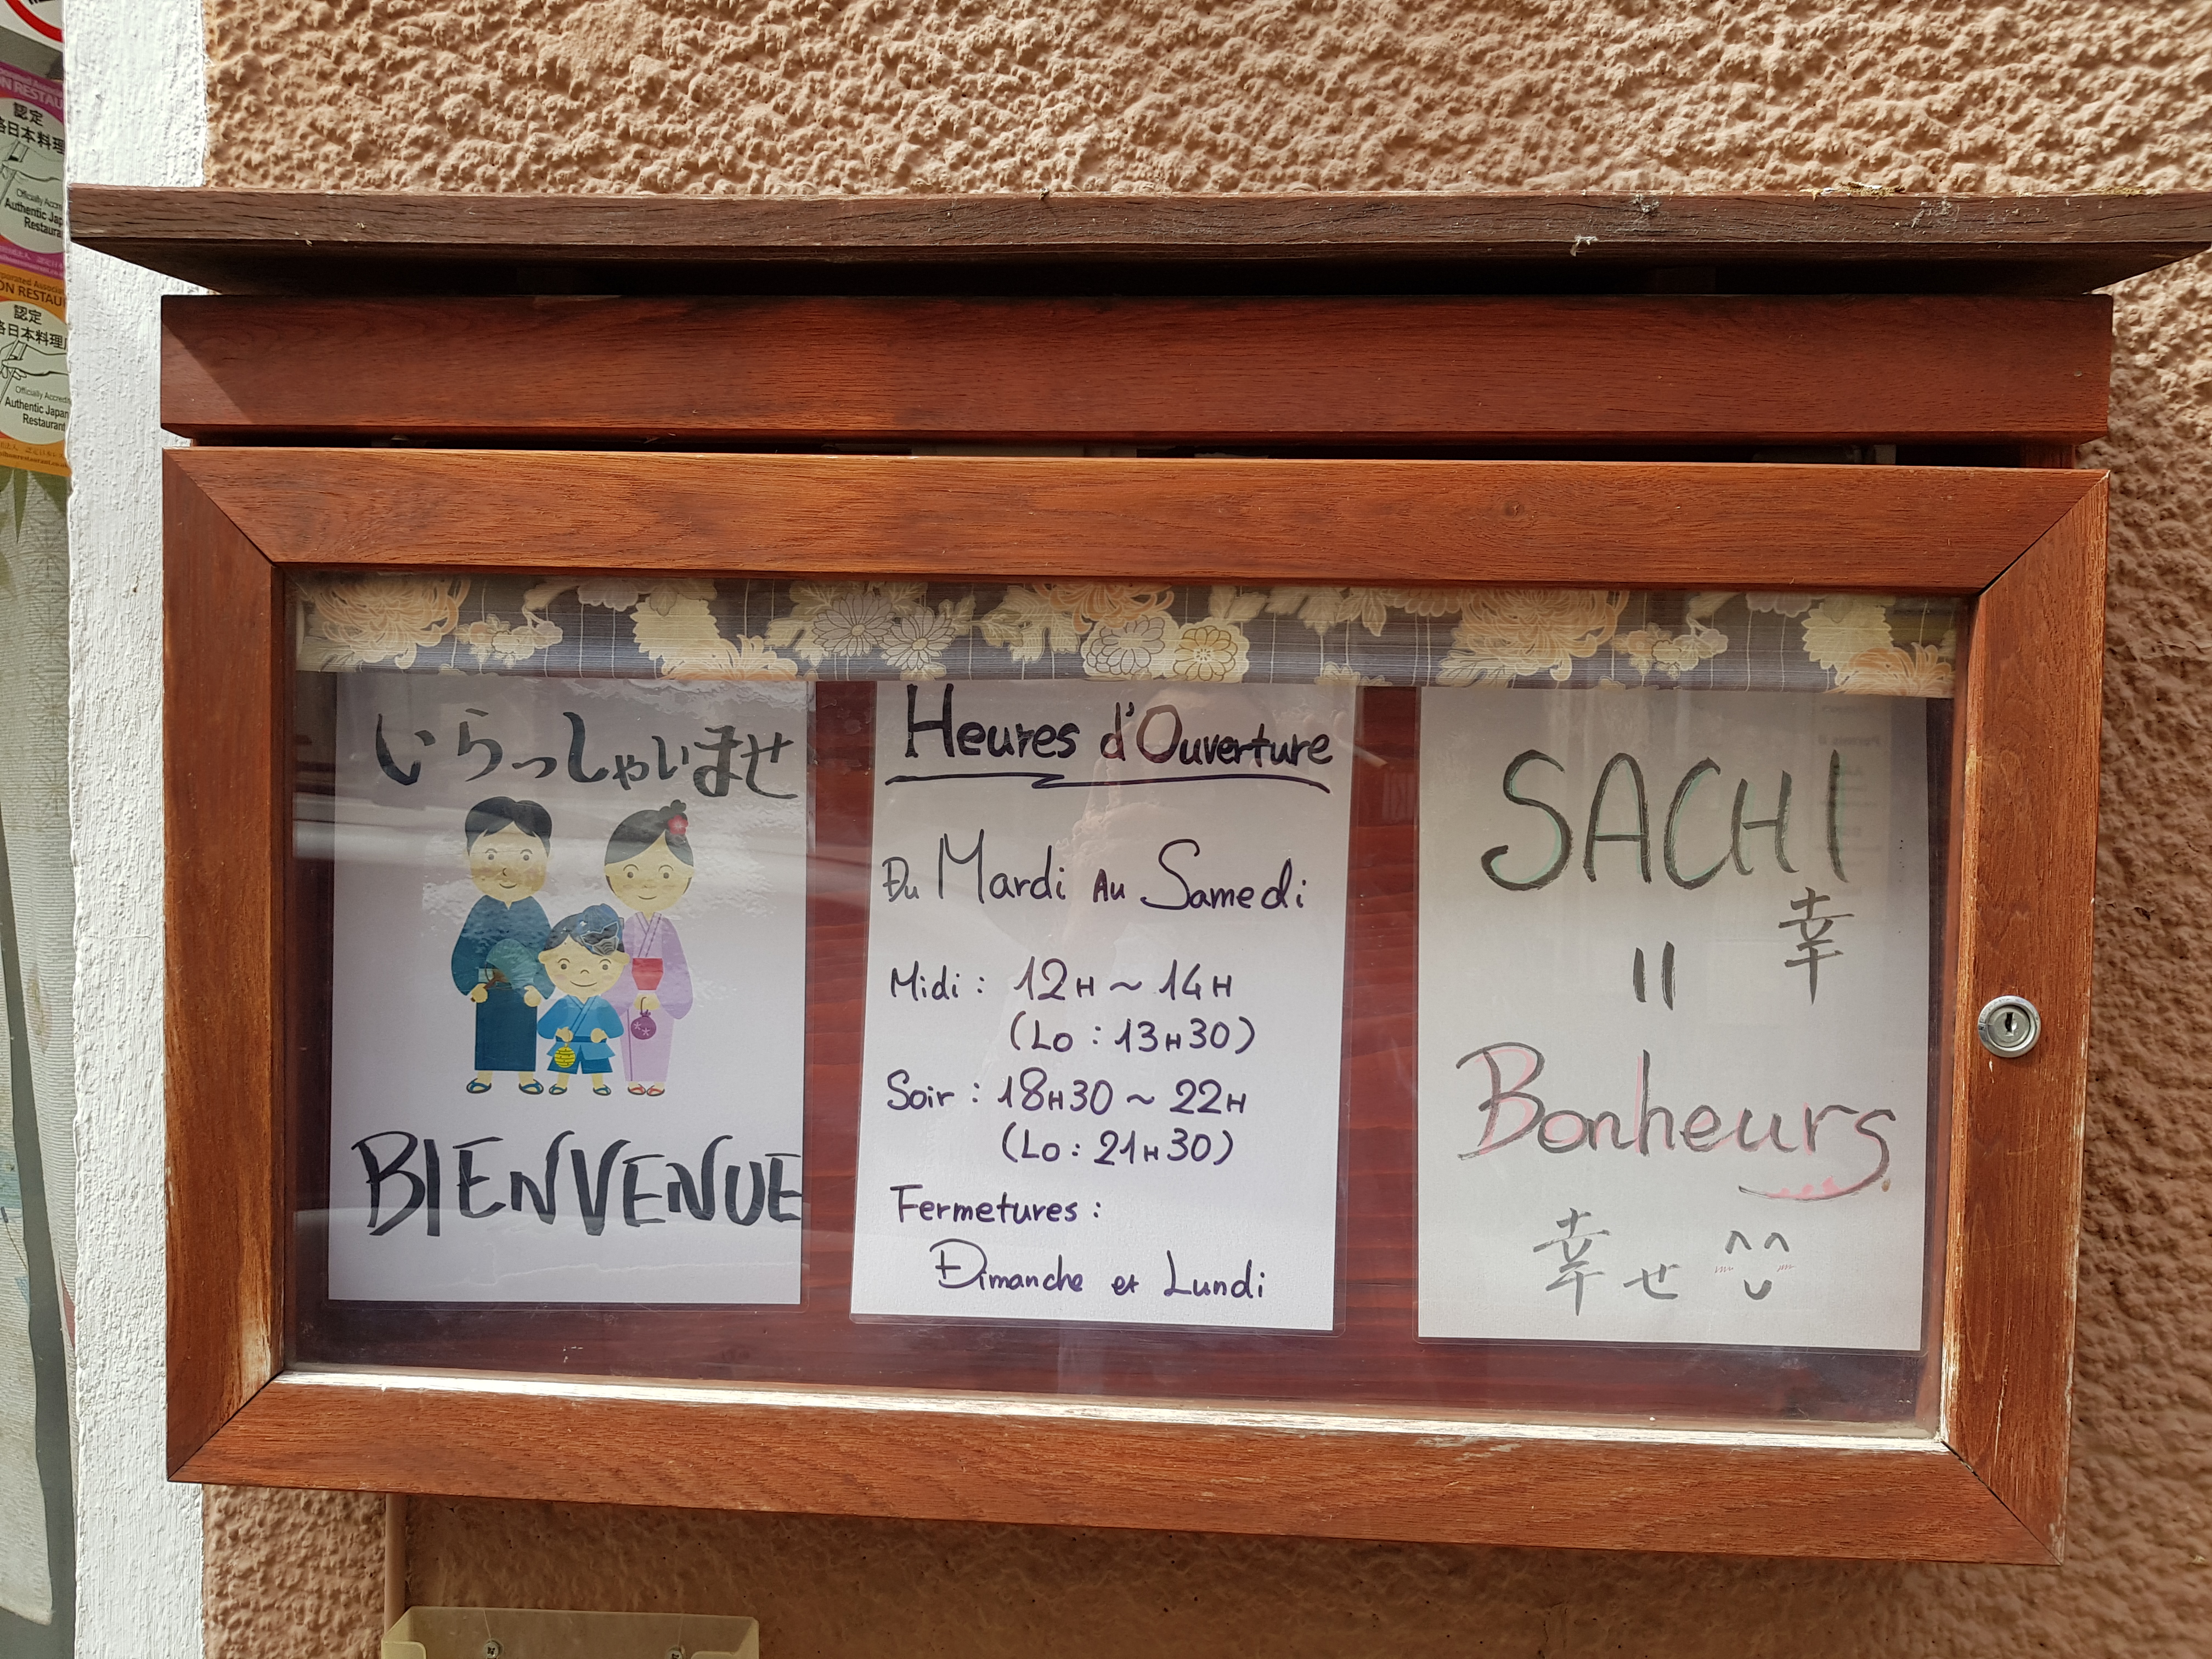 認定
日本料理
Officially Accre
Authentic Jap
Restaura
ON RESTAU
認定
日本料理
Officially Accredit
Authentic Japan
Restaurant
いらっしゃいませ
BIENVENUE
Heures d'Ouverture
Du Mardi Au Samedi
Midi : 12H ~ 14H
(Lo : 13H30)
Soir : 18H30 ~ 22H
(Lo : 21H30)
Fermetures :
Dimanche et Lundi
SACHI
幸
=
Bonheurs
幸せ